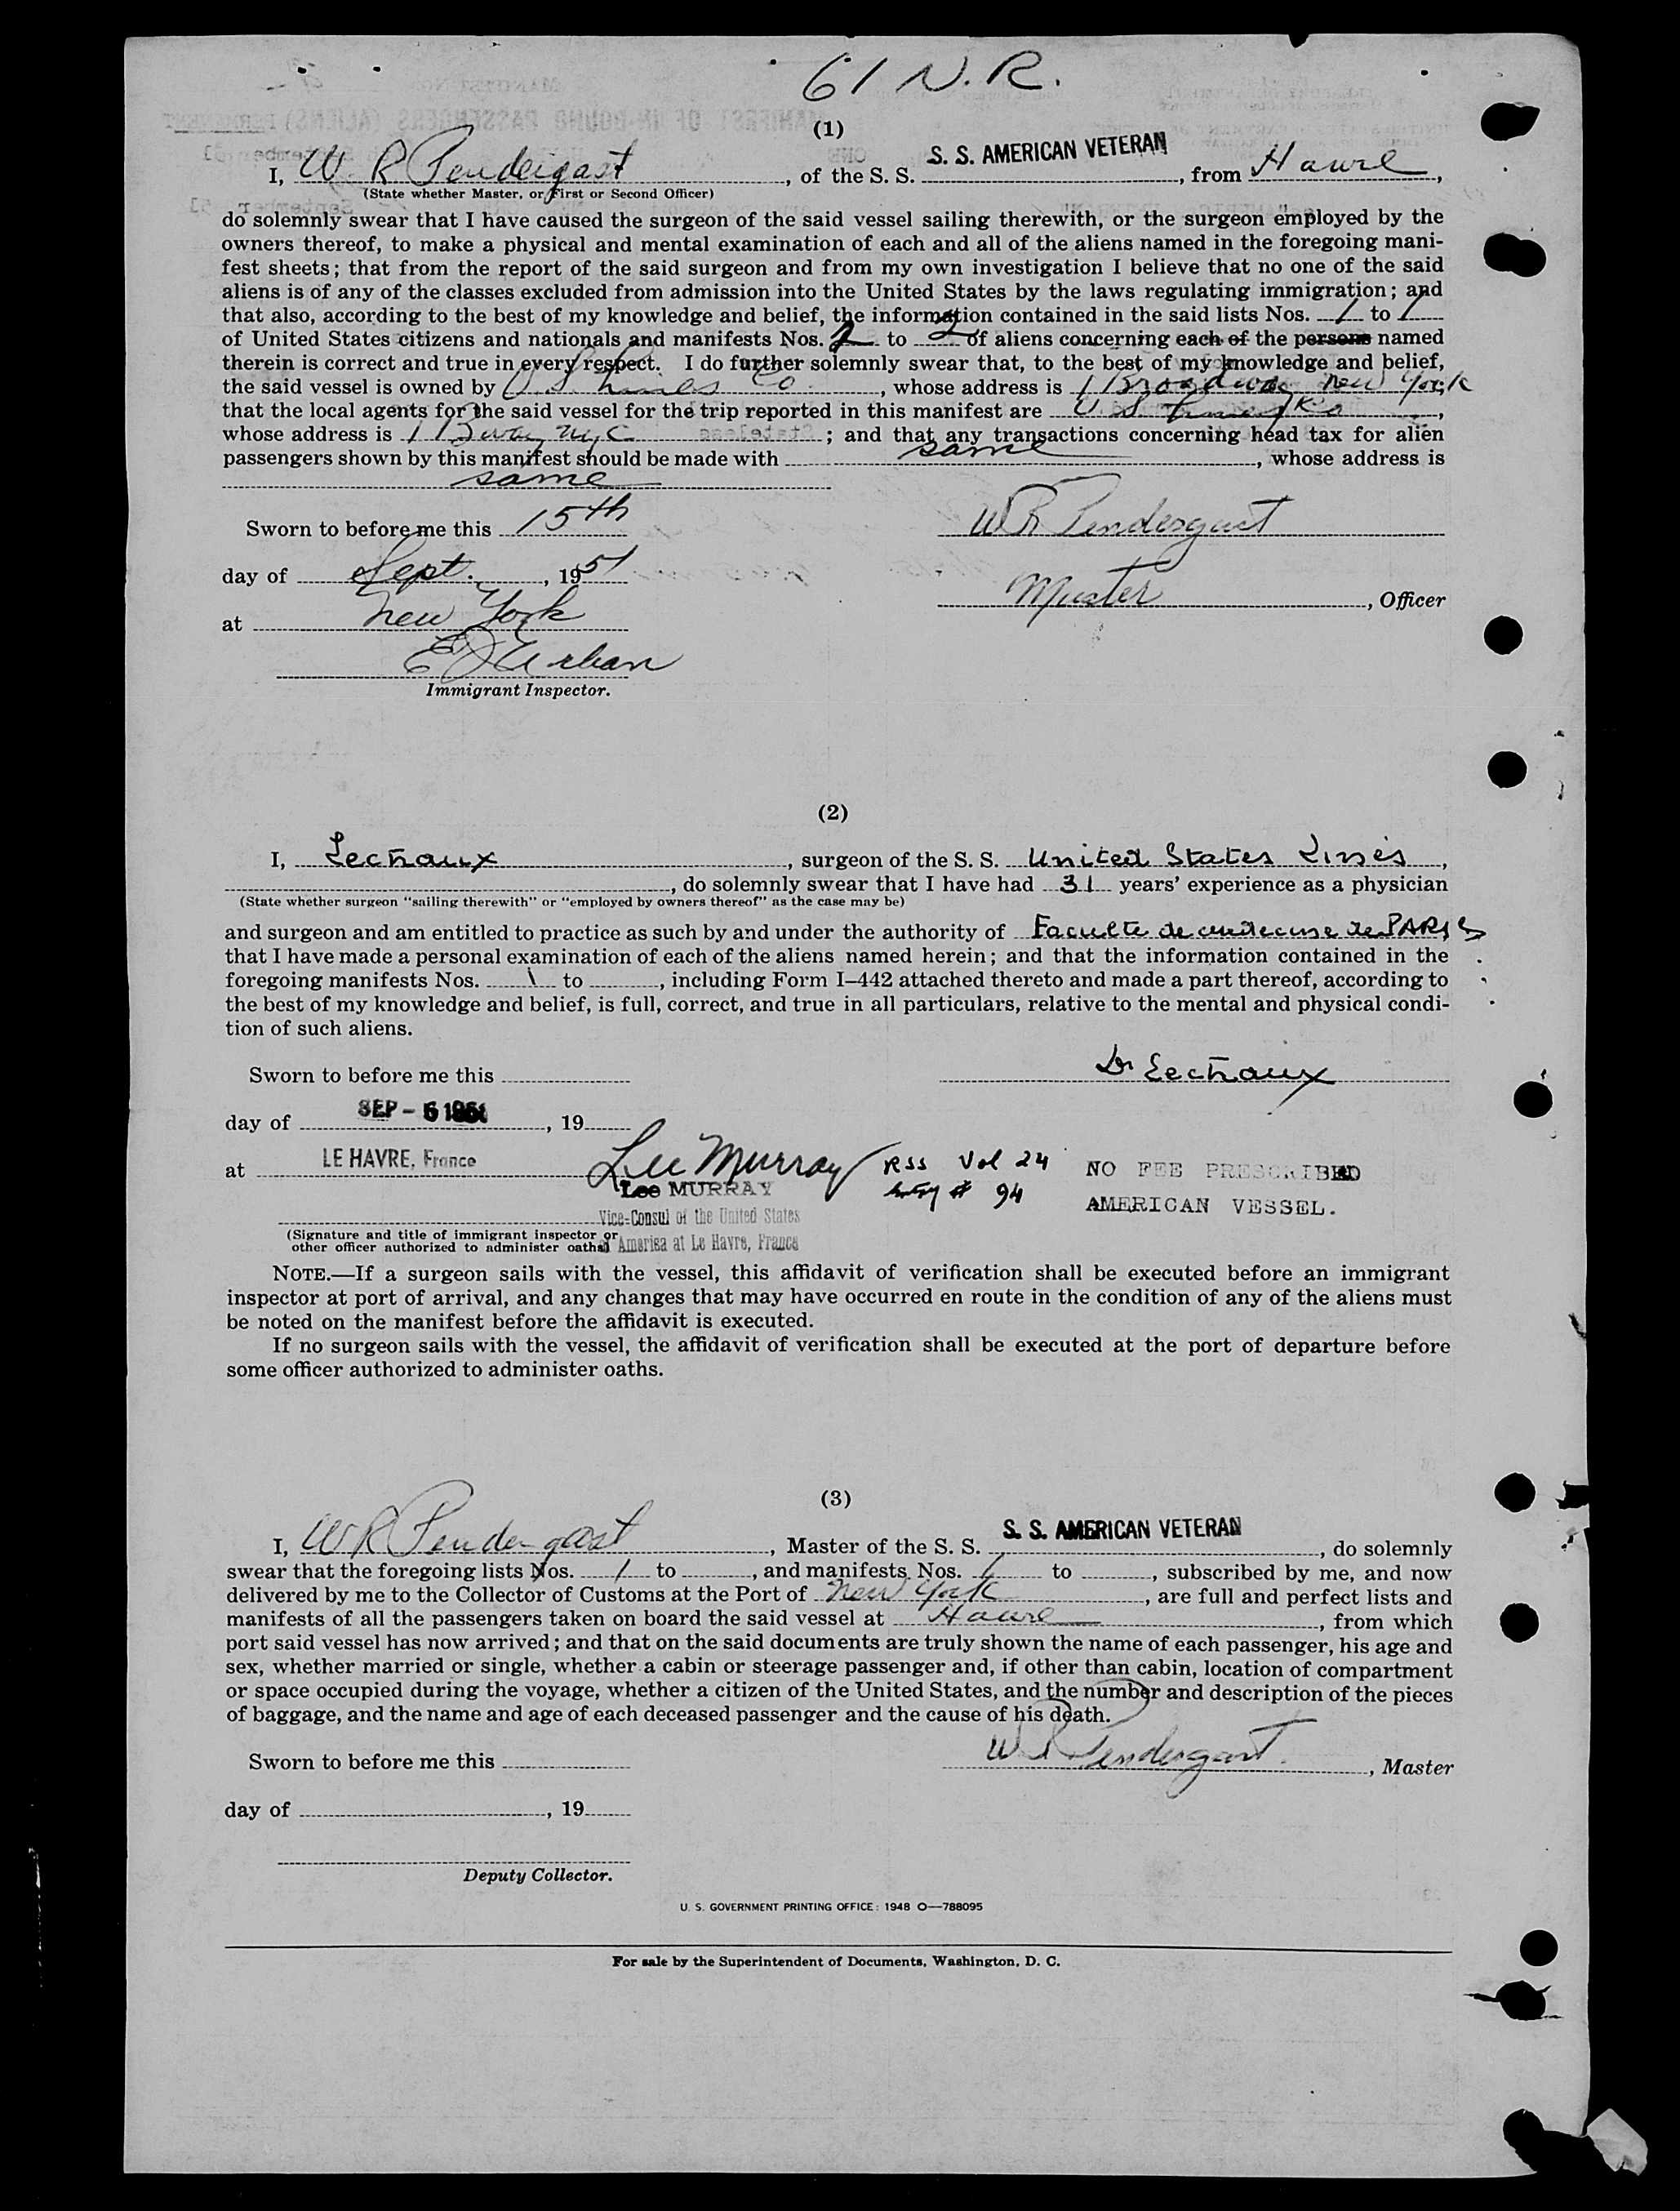 61 N.R.
(1)
I, W R Pendergast, of the S. S. S. S. AMERICAN VETERAN, from Havre,
(State whether Master, or First or Second Officer)
do solemnly swear that I have caused the surgeon of the said vessel sailing therewith, or the surgeon employed by the
owners thereof, to make a physical and mental examination of each and all of the aliens named in the foregoing mani-
fest sheets; that from the report of the said surgeon and from my own investigation I believe that no one of the said
aliens is of any of the classes excluded from admission into the United States by the laws regulating immigration; and
that also, according to the best of my knowledge and belief, the information contained in the said lists Nos. 1 to 1
of United States citizens and nationals and manifests Nos. 2 to 2 of aliens concerning each of the persons named
therein is correct and true in every respect. I do further solemnly swear that, to the best of my knowledge and belief,
the said vessel is owned by U S Lines Co, whose address is 1 Broadway New York
that the local agents for the said vessel for the trip reported in this manifest are U S Lines Co,
whose address is 1 Bway NYC; and that any transactions concerning head tax for alien
passengers shown by this manifest should be made with same, whose address is
same
Sworn to before me this 15th
W R Pendergast
day of Sept., 1951
Master, Officer
at New York
E J Urban
Immigrant Inspector.
(2)
I, Lechaux, surgeon of the S. S. United States Lines,
, do solemnly swear that I have had 31 years' experience as a physician
(State whether surgeon "sailing therewith" or "employed by owners thereof" as the case may be)
and surgeon and am entitled to practice as such by and under the authority of Faculte de medecine de PARIS
that I have made a personal examination of each of the aliens named herein; and that the information contained in the
foregoing manifests Nos. 1 to , including Form I–442 attached thereto and made a part thereof, according to
the best of my knowledge and belief, is full, correct, and true in all particulars, relative to the mental and physical condi-
tion of such aliens.
Sworn to before me this
Dr Lechaux
day of SEP - 6 1951, 19
at LE HAVRE, France
Lee Murray
RSS Vol 24
NO FEE PRESCRIBED
Lee MURRAY
Entry # 94
AMERICAN VESSEL.
Vice-Consul of the United States
(Signature and title of immigrant inspector or
other officer authorized to administer oaths) America at Le Havre, France
NOTE.—If a surgeon sails with the vessel, this affidavit of verification shall be executed before an immigrant
inspector at port of arrival, and any changes that may have occurred en route in the condition of any of the aliens must
be noted on the manifest before the affidavit is executed.
If no surgeon sails with the vessel, the affidavit of verification shall be executed at the port of departure before
some officer authorized to administer oaths.
(3)
I, W R Pendergast, Master of the S. S. S. S. AMERICAN VETERAN, do solemnly
swear that the foregoing lists Nos. 1 to , and manifests Nos. to , subscribed by me, and now
delivered by me to the Collector of Customs at the Port of New York, are full and perfect lists and
manifests of all the passengers taken on board the said vessel at Havre, from which
port said vessel has now arrived; and that on the said documents are truly shown the name of each passenger, his age and
sex, whether married or single, whether a cabin or steerage passenger and, if other than cabin, location of compartment
or space occupied during the voyage, whether a citizen of the United States, and the number and description of the pieces
of baggage, and the name and age of each deceased passenger and the cause of his death.
Sworn to before me this
W R Pendergast, Master
day of , 19
Deputy Collector.
U. S. GOVERNMENT PRINTING OFFICE: 1948 O—788095
For sale by the Superintendent of Documents, Washington, D. C.